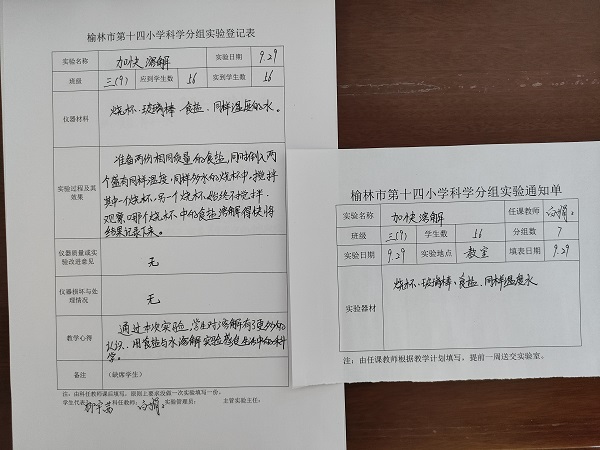 榆林市第十四小学科学分组实验登记表
实验名称 加快溶解 实验日期 9.29
班级 三(9) 应到学生数 56 实到学生数 56
仪器材料 烧杯、玻璃棒、食盐、同样温度的水。
实验过程及其效果 准备两份相同质量的食盐,同时倒入两
个盛有同样温度、同样多水的烧杯中,搅拌
其中一个烧杯,另一个烧杯始终不搅拌。
观察哪个烧杯中的食盐溶解得快将
结果记录下来。
仪器质量或实验改进意见 无
仪器损坏与处理情况 无
教学心得 通过本次实验,学生对溶解有了更多的
认识、用食盐与水溶解实验感受生活中的科
学。
备注 (缺席学生)
注:由科任教师课后填写,原则上要求没做一次实验填写一份。
学生代表: 科任教师: 实验管理员: 主管实验主任:
榆林市第十四小学科学分组实验通知单
实验名称 加快溶解 任课教师
班级 三(9) 学生数 56 分组数 7
实验日期 9.29 实验地点 教室 填表日期 9.29
实验器材 烧杯、玻璃棒、食盐、同样温度水
注:由任课教师根据教学计划填写,提前一周送交实验室。